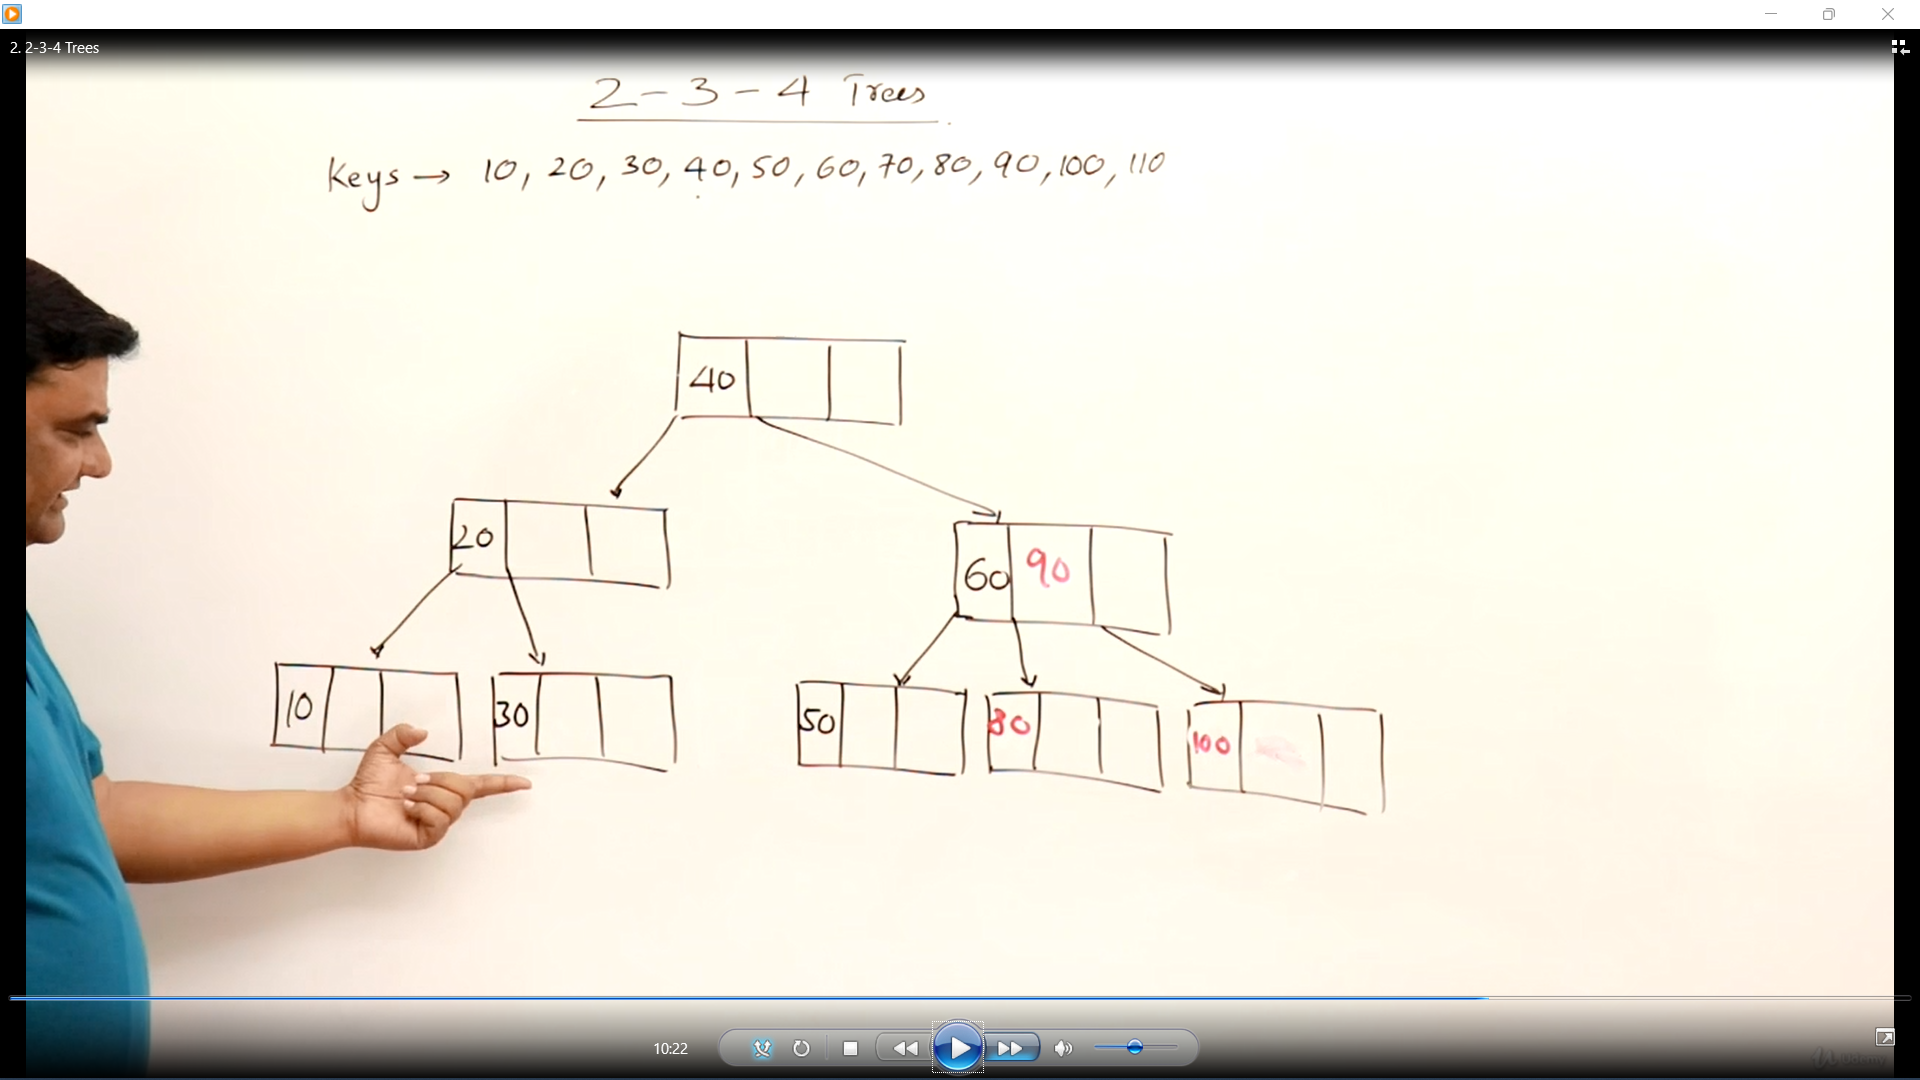 2. 2-3-4 Trees
2-3-4 Trees
Keys → 10, 20, 30, 40, 50, 60, 70, 80, 90, 100, 110
40
20
60 90
10 30 50 80 100
10:22
udemy